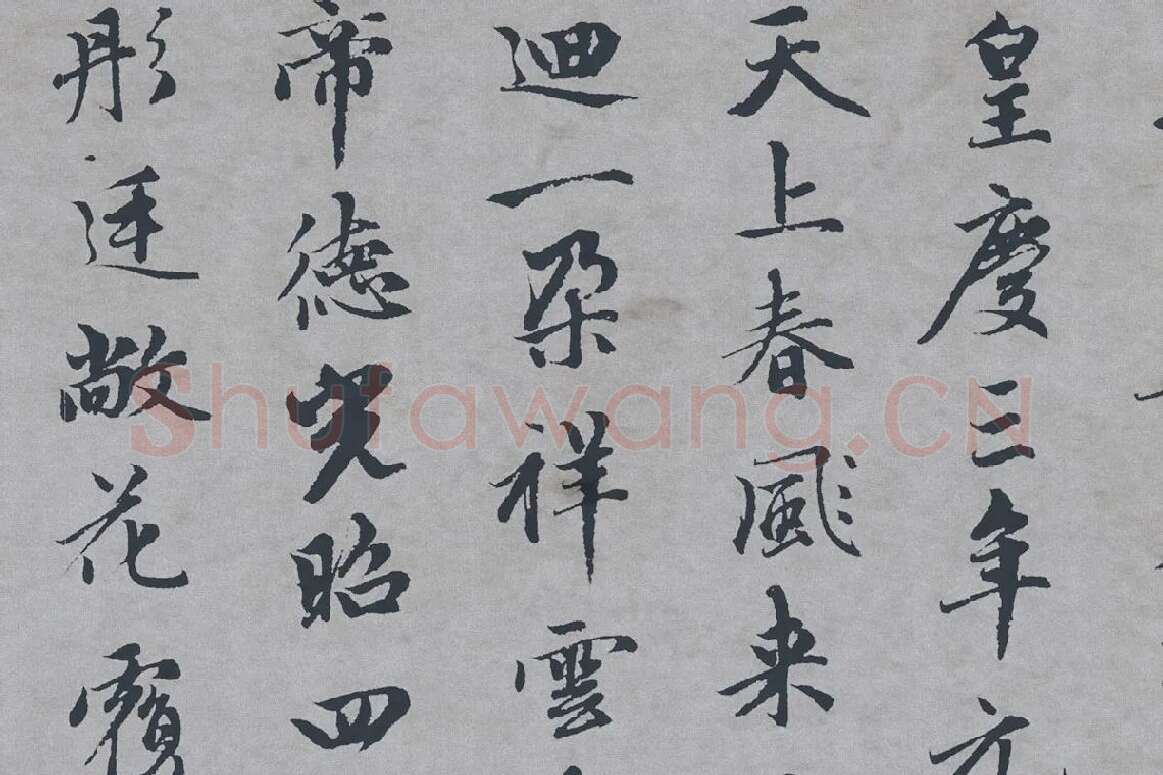 皇慶三年方
天上春風来
迴一朵祥雲
帝德光昭四
彤廷敞花
Shufawang.CN